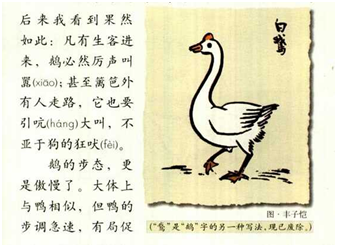 后来我看到果然
如此：凡有生客进
来，鹅必然厉声叫
嚣(xiāo)；甚至篱笆外
有人走路，它也要
引吭(háng)大叫，不
亚于狗的狂吠(fèi)。
鹅的步态，更
是傲慢了。大体上
与鸭相似，但鸭的
步调急速，有局促
白鹅
图·丰子恺
(“鵞”是“鹅”字的另一种写法，现已废除。)